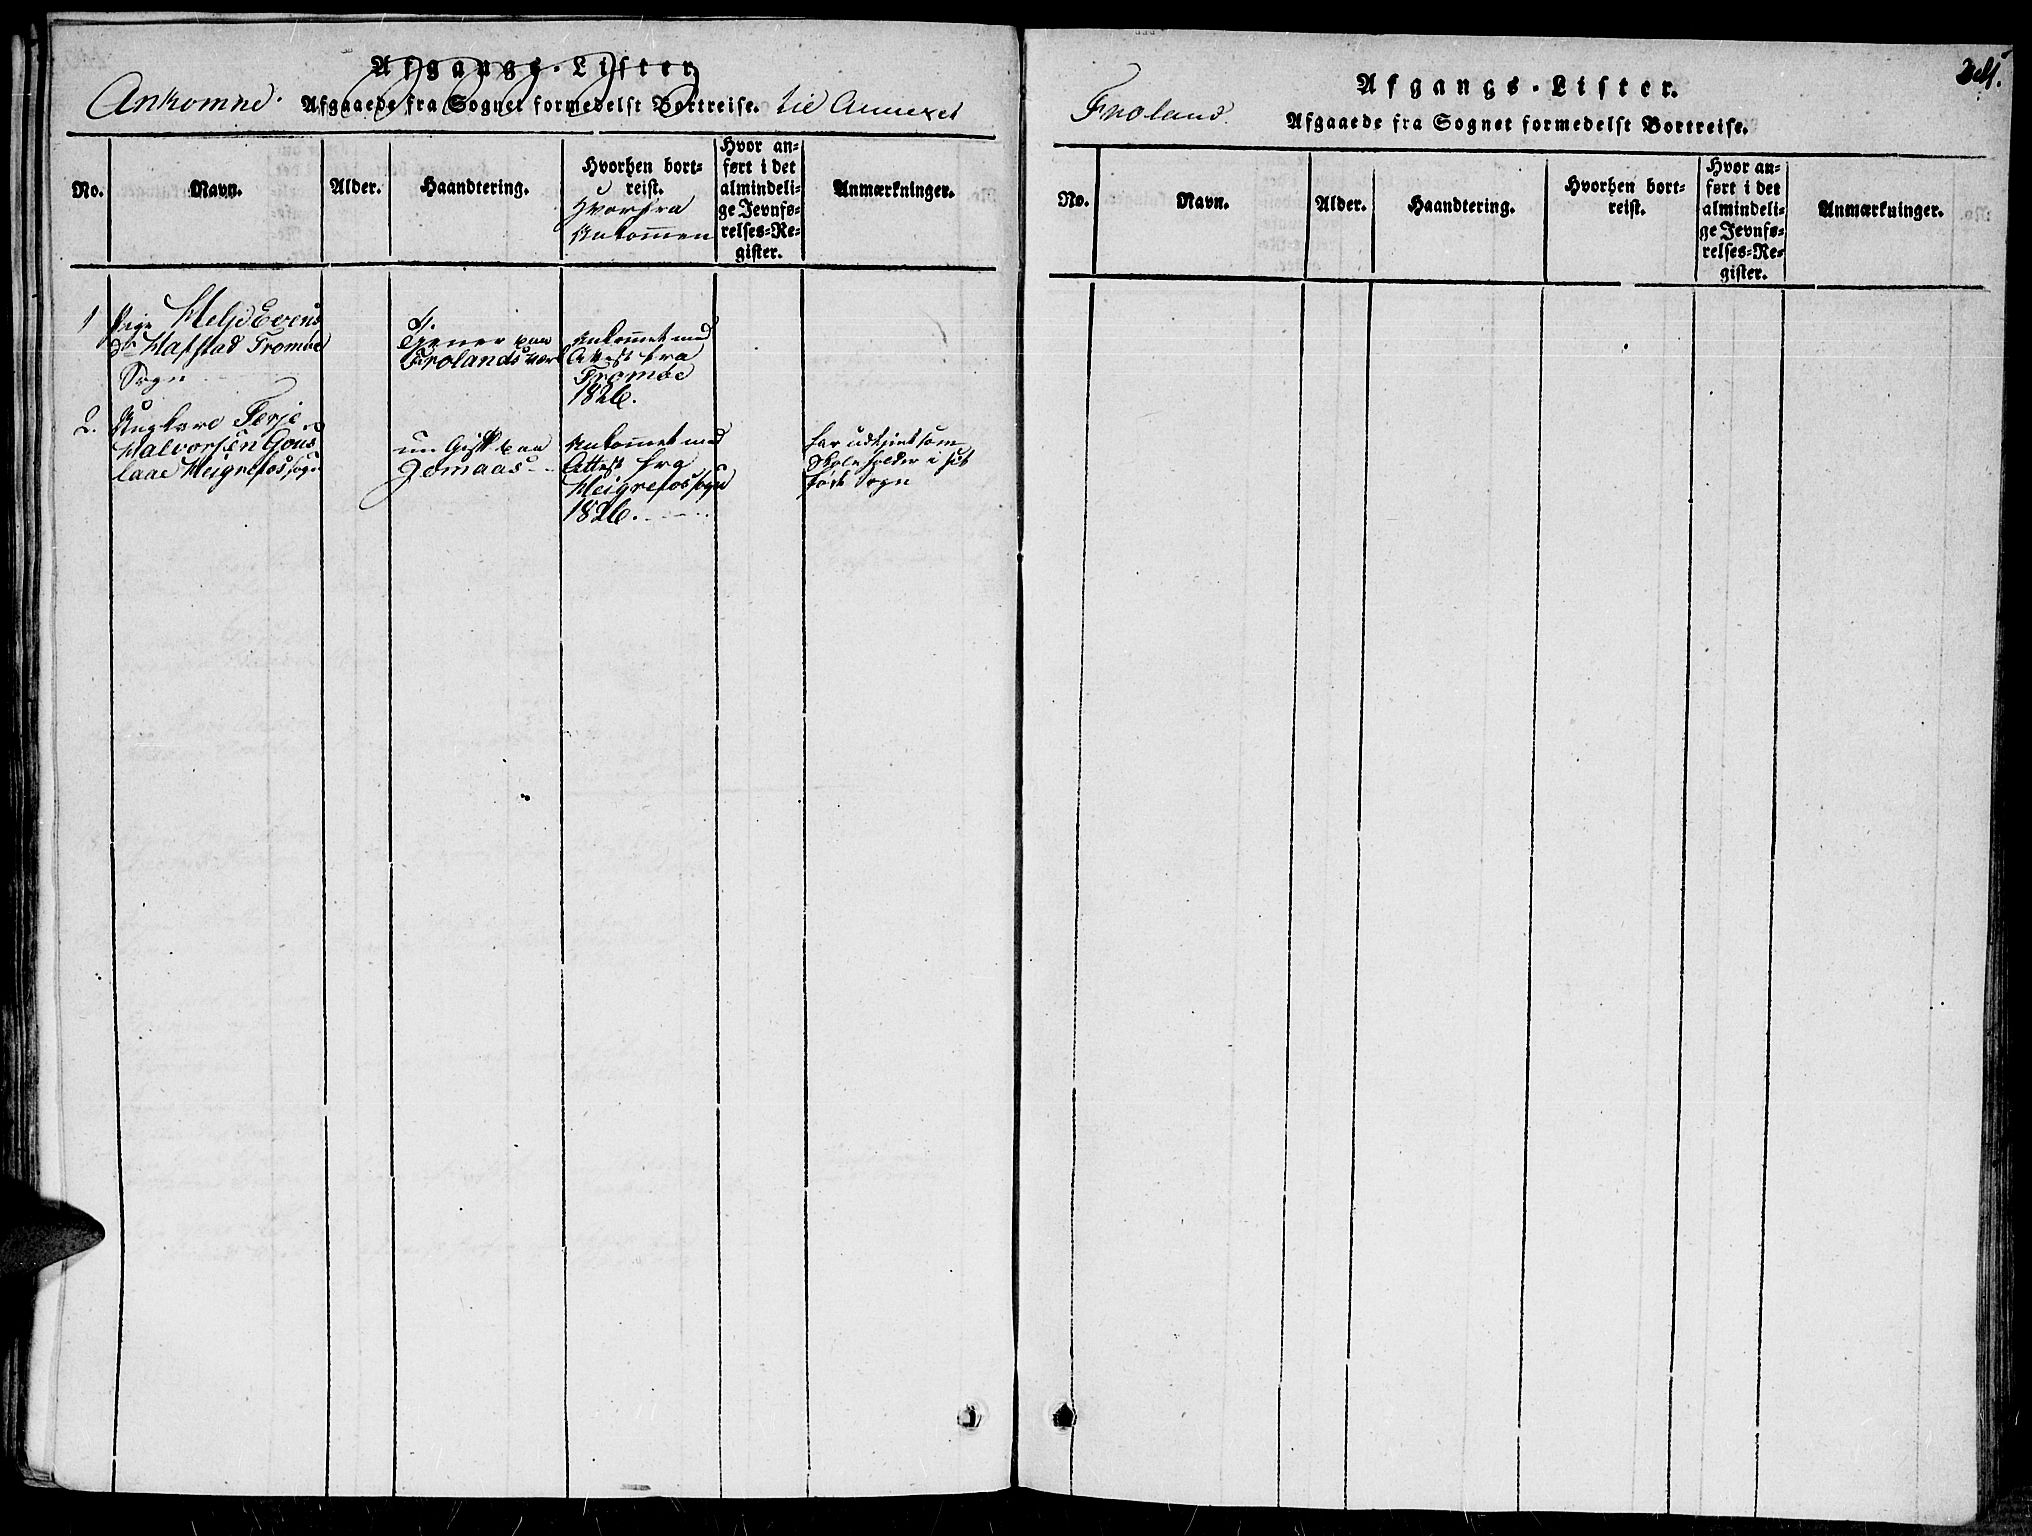 Afgangs-Lister.
Ankomne Afgaaede fra Sognet formedelst Bortreise. til Annexet
No.
Navn.
Alder.
Haandtering.
Hvorhen bort-
reist.
Hvorfra
Ankommen
Hvor an-
ført i det
almindeli-
ge Jevnfø-
relses-Re-
gister.
Anmærkninger.
1
Pige
Evens
Dr Hafstad Tromøe
Sogn
Tjener paa
Frolands Værk
Ankommet med
Attest fra
Tromøe
1826.
2.
Ungkarl Terje
Halvorsen
laae Heigrefos sogn
Gift paa
Jomaas
Ankommet med
Attest fra
Heigrefos sogn
1826.
har udtjent som
Skoleholder i sit
Sogn
241.
Afgangs-Lister.
Froland. Afgaaede fra Sognet formedelst Bortreise.
No.
Navn.
Alder.
Haandtering.
Hvorhen bort-
reist.
Hvor an-
ført i det
almindeli-
ge Jevnfø-
relses-Re-
gister.
Anmærkninger.